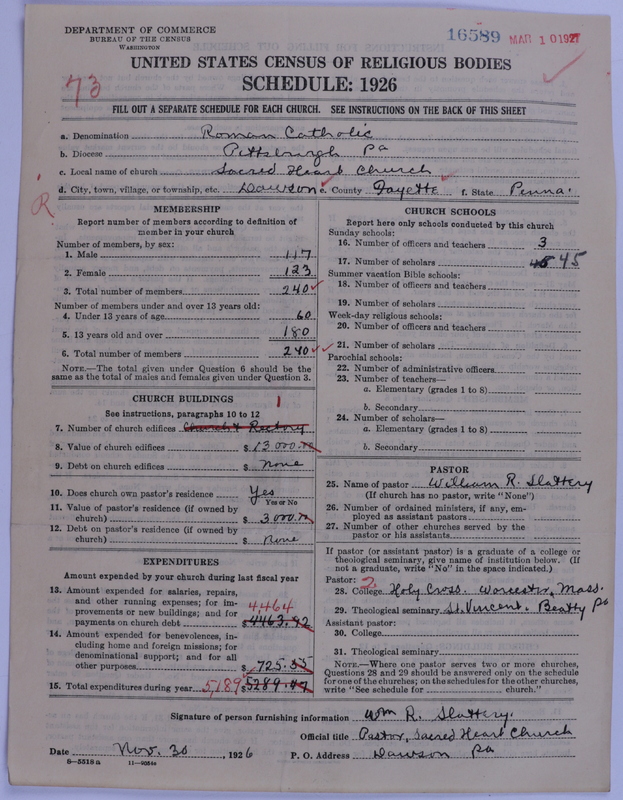 DEPARTMENT OF COMMERCE
BUREAU OF THE CENSUS
WASHINGTON
16589 MAR 10 1927
UNITED STATES CENSUS OF RELIGIOUS BODIES
SCHEDULE: 1926
73
FILL OUT A SEPARATE SCHEDULE FOR EACH CHURCH. SEE INSTRUCTIONS ON THE BACK OF THIS SHEET
a. Denomination Roman Catholic
b. Diocese Pittsburgh Pa
c. Local name of church Sacred Heart Church
d. City, town, village, or township, etc. Dawson e. County Fayette f. State Penna.
R
MEMBERSHIP
Report number of members according to definition of
member in your church
Number of members, by sex:
1. Male 117
2. Female 123
3. Total number of members 240
Number of members under and over 13 years old:
4. Under 13 years of age 60
5. 13 years old and over 180
6. Total number of members 240
NOTE.—The total given under Question 6 should be the
same as the total of males and females given under Question 3.
CHURCH BUILDINGS
See instructions, paragraphs 10 to 12
1
7. Number of church edifices Church & Rectory
8. Value of church edifices $ 13000.00
9. Debt on church edifices $ None
10. Does church own pastor's residence Yes
Yes or No
11. Value of pastor's residence (if owned by
church) $ 3000.00
12. Debt on pastor's residence (if owned by
church) $ None
EXPENDITURES
Amount expended by your church during last fiscal year
13. Amount expended for salaries, repairs,
and other running expenses; for im-
provements or new buildings; and for
payments on church debt 4464 $ 4463.92
14. Amount expended for benevolences, in-
cluding home and foreign missions; for
denominational support; and for all
other purposes $ 725.55
15. Total expenditures during year 5,189 $ 5289.47
CHURCH SCHOOLS
Report here only schools conducted by this church
Sunday schools:
16. Number of officers and teachers 3
17. Number of scholars 45
Summer vacation Bible schools:
18. Number of officers and teachers
19. Number of scholars
Week-day religious schools:
20. Number of officers and teachers
21. Number of scholars
Parochial schools:
22. Number of administrative officers
23. Number of teachers—
a. Elementary (grades 1 to 8)
b. Secondary
24. Number of scholars—
a. Elementary (grades 1 to 8)
b. Secondary
PASTOR
25. Name of pastor William R. Slattery
(If church has no pastor, write "None")
26. Number of ordained ministers, if any, em-
ployed as assistant pastors
27. Number of other churches served by the
pastor or his assistants
If pastor (or assistant pastor) is a graduate of a college or
theological seminary, give name of institution below. (If
not a graduate, write "No" in the space indicated.)
Pastor: 2
28. College Holy Cross. Worcester, Mass.
29. Theological seminary St. Vincent. Beatty Pa
Assistant pastor:
30. College
31. Theological seminary
NOTE.—Where one pastor serves two or more churches,
Questions 28 and 29 should be answered only on the schedule
for one of the churches; on the schedules for the other churches,
write "See schedule for church."
Signature of person furnishing information Wm R. Slattery.
Official title Pastor, Sacred Heart Church
Date Nov. 30, 1926 P. O. Address Dawson Pa
8—5518 a